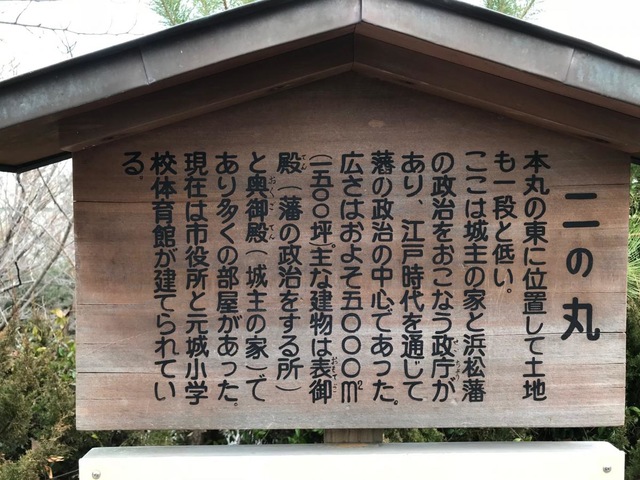 二の丸
本丸の東に位置して土地
も一段と低い。
ここは城主の家と浜松藩
の政治をおこなう政庁が
あり、江戸時代を通じて
藩の政治の中心であった。
広さはおよそ五〇〇〇㎡
(一五〇〇坪)。主な建物は表御
殿(藩の政治をする所)
と奥御殿(城主の家)で
あり多くの部屋があった。
現在は市役所と元城小学
校体育館が建てられてい
る。